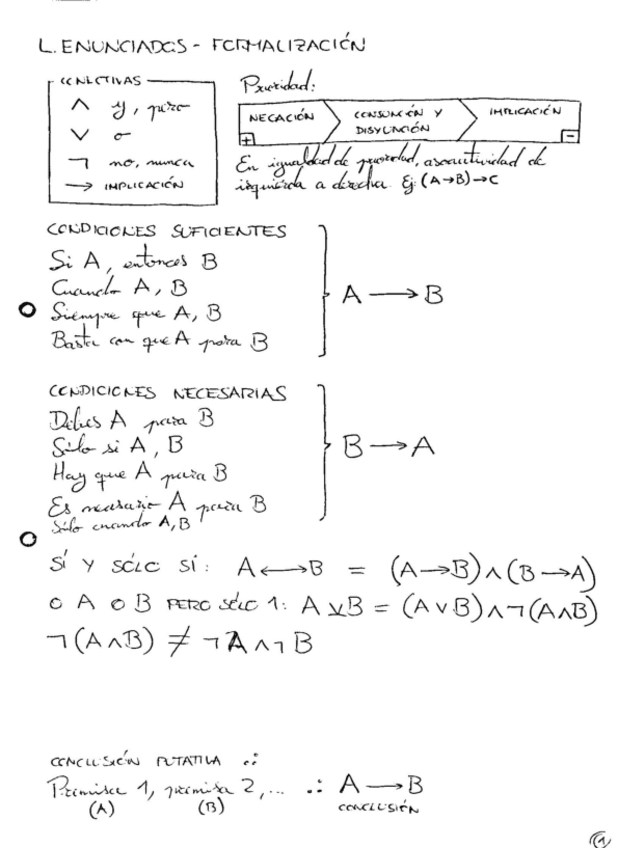 L. ENUNCIADOS - FORMALIZACIÓN
CONECTIVAS
∧ y, pero
∨ o
¬ no, nunca
→ IMPLICACIÓN
Prioridad:
NEGACIÓN
CONJUNCIÓN Y DISYUNCIÓN
IMPLICACIÓN
+
-
En igualdad de prioridad, asociatividad de
izquierda a derecha. Ej: (A→B)→C
CONDICIONES SUFICIENTES
Si A, entonces B
Cuando A, B
Siempre que A, B
Basta con que A para B
A → B
CONDICIONES NECESARIAS
Debes A para B
Sólo si A, B
Hay que A para B
Es necesario A para B
Sólo cuando A, B
B → A
SÍ Y SÓLO SÍ: A ↔ B = (A→B)∧(B→A)
O A O B PERO SÓLO 1: A ⊻ B = (A∨B)∧¬(A∧B)
¬(A∧B) ≠ ¬A∧¬B
CONCLUSIÓN PUTATIVA ∴
Premisa 1, premisa 2, ... ∴ A → B
(A) (B) CONCLUSIÓN
1